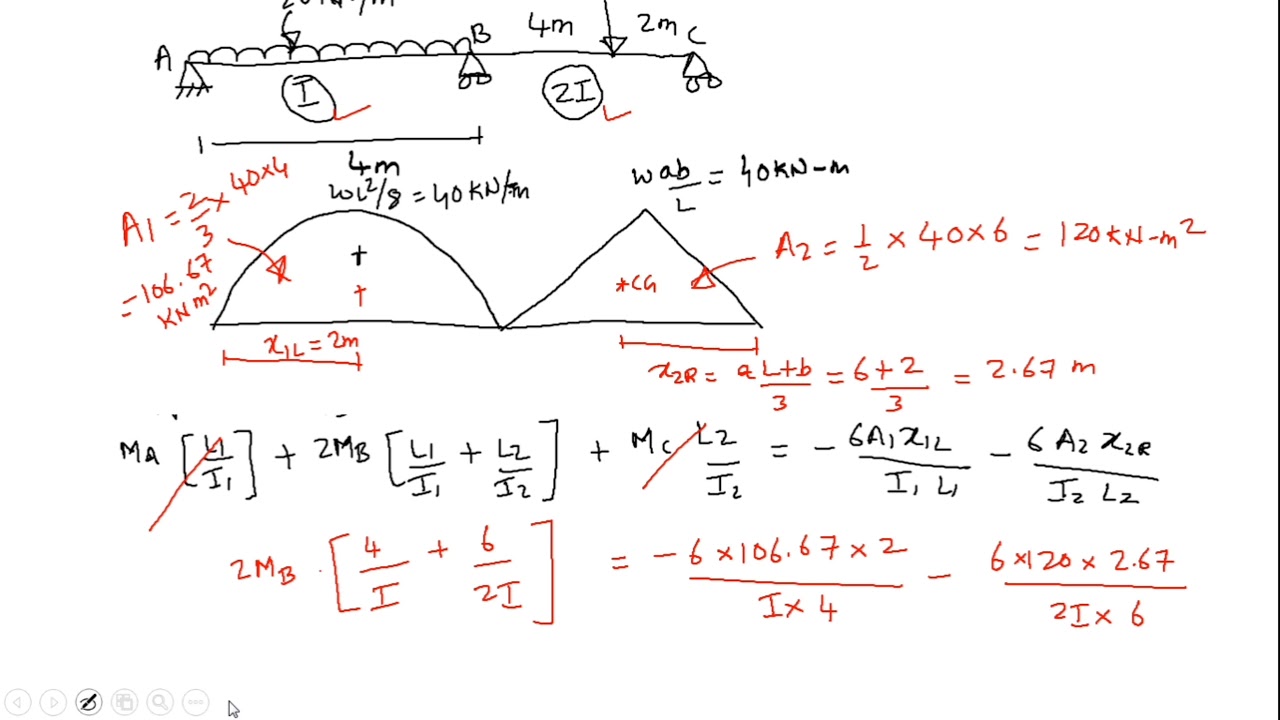 A B 4m 2m C
I 2I
4m
A1 = 2/3 × 40×4
= 106.67 KNm²
WL²/8 = 40KN/m
Wab/L = 40KN-m
A2 = 1/2 × 40 × 6 = 120KN-m²
+
+
*CG
x1L = 2m
x2R = a L+b/3 = 6+2/3 = 2.67 m
MA [L1/I1] + 2MB [L1/I1 + L2/I2] + MC L2/I2 = - 6A1x1L/I1 L1 - 6A2 x2R/I2 L2
2MB . [4/I + 6/2I] = - 6×106.67×2/I×4 - 6×120×2.67/2I×6